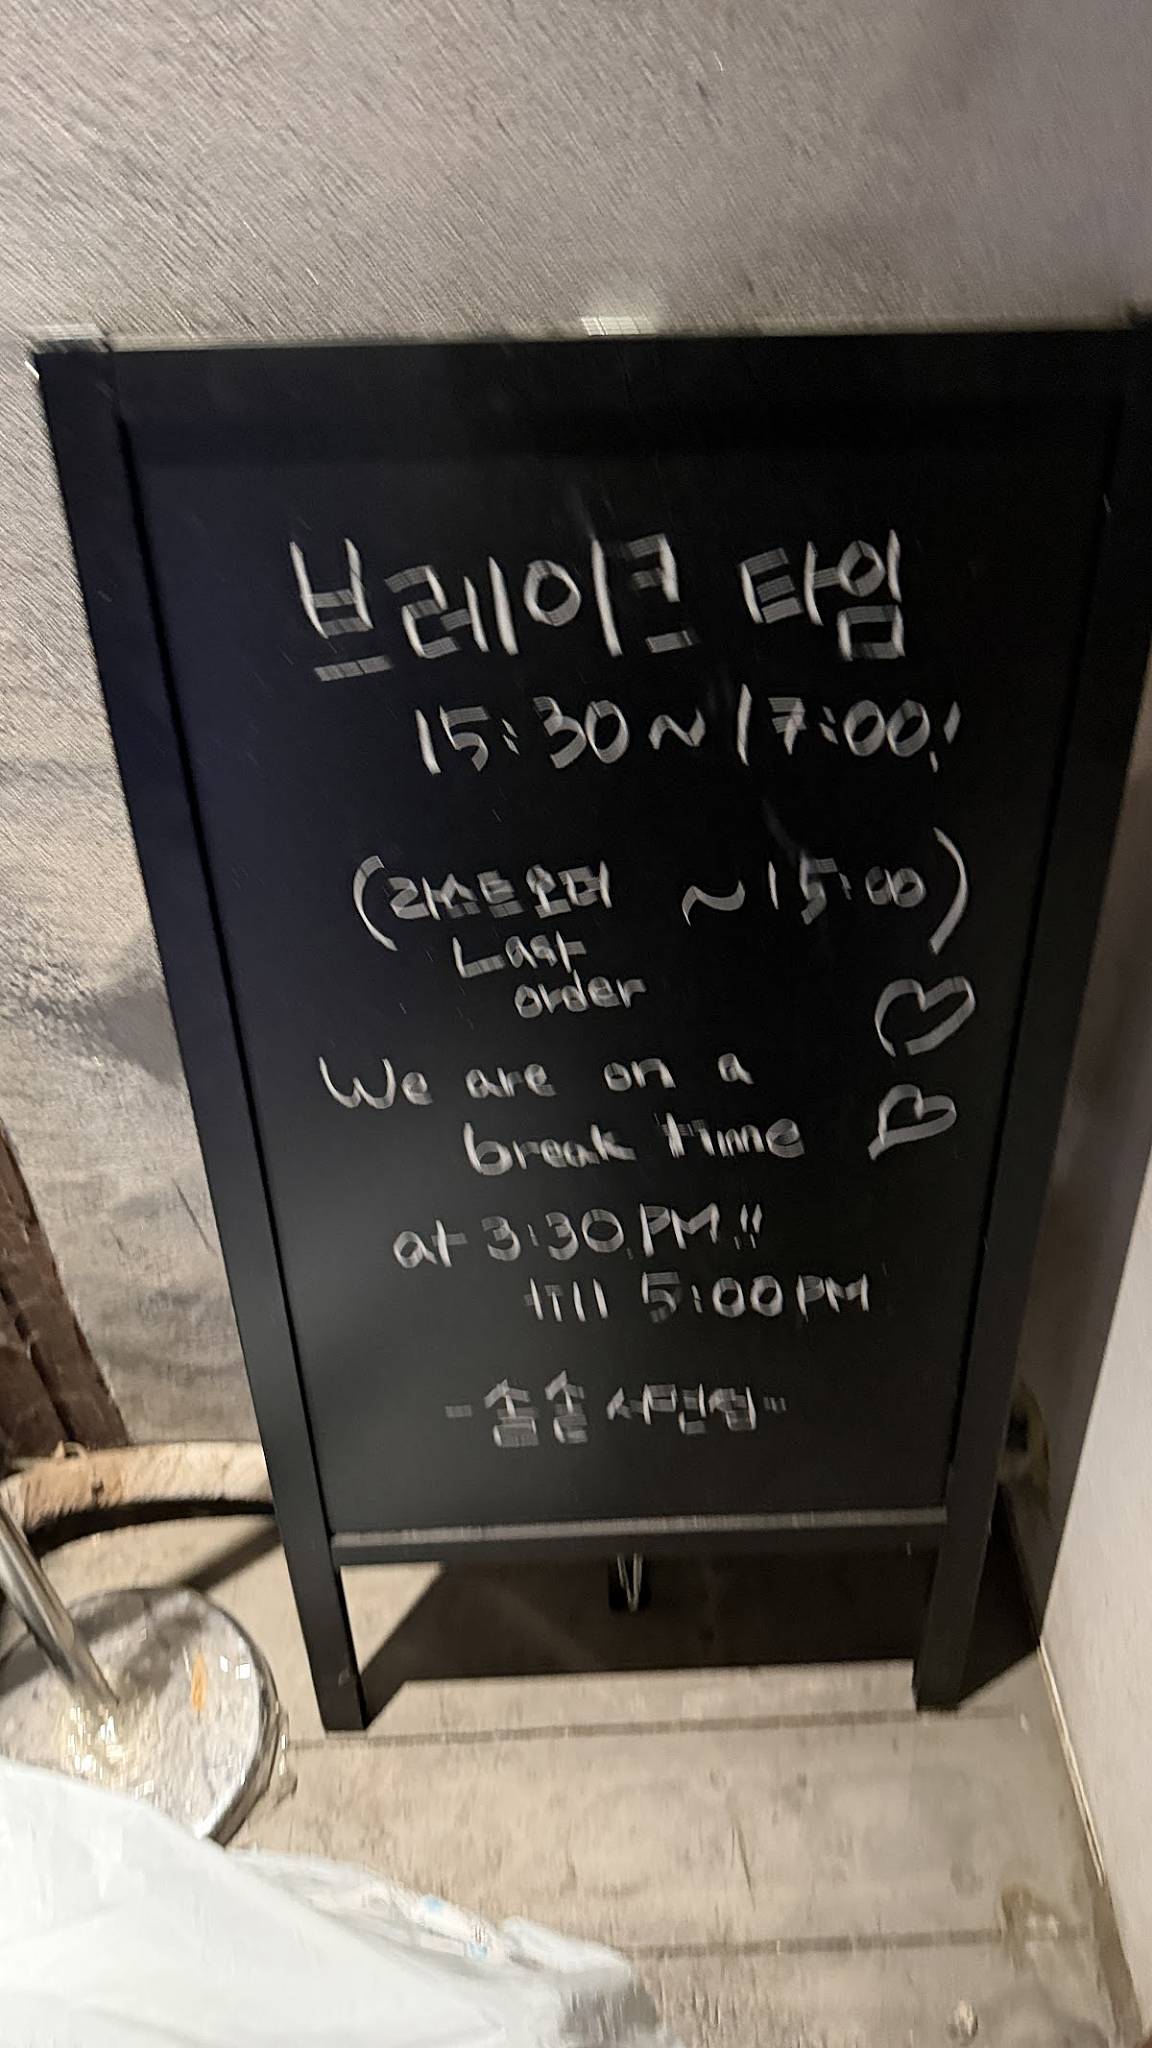 브레이크 타임
15:30~17:00!!
(라스트오더 ~15:00)
Last
order
We are on a
break time
at 3:30 PM!!
till 5:00PM